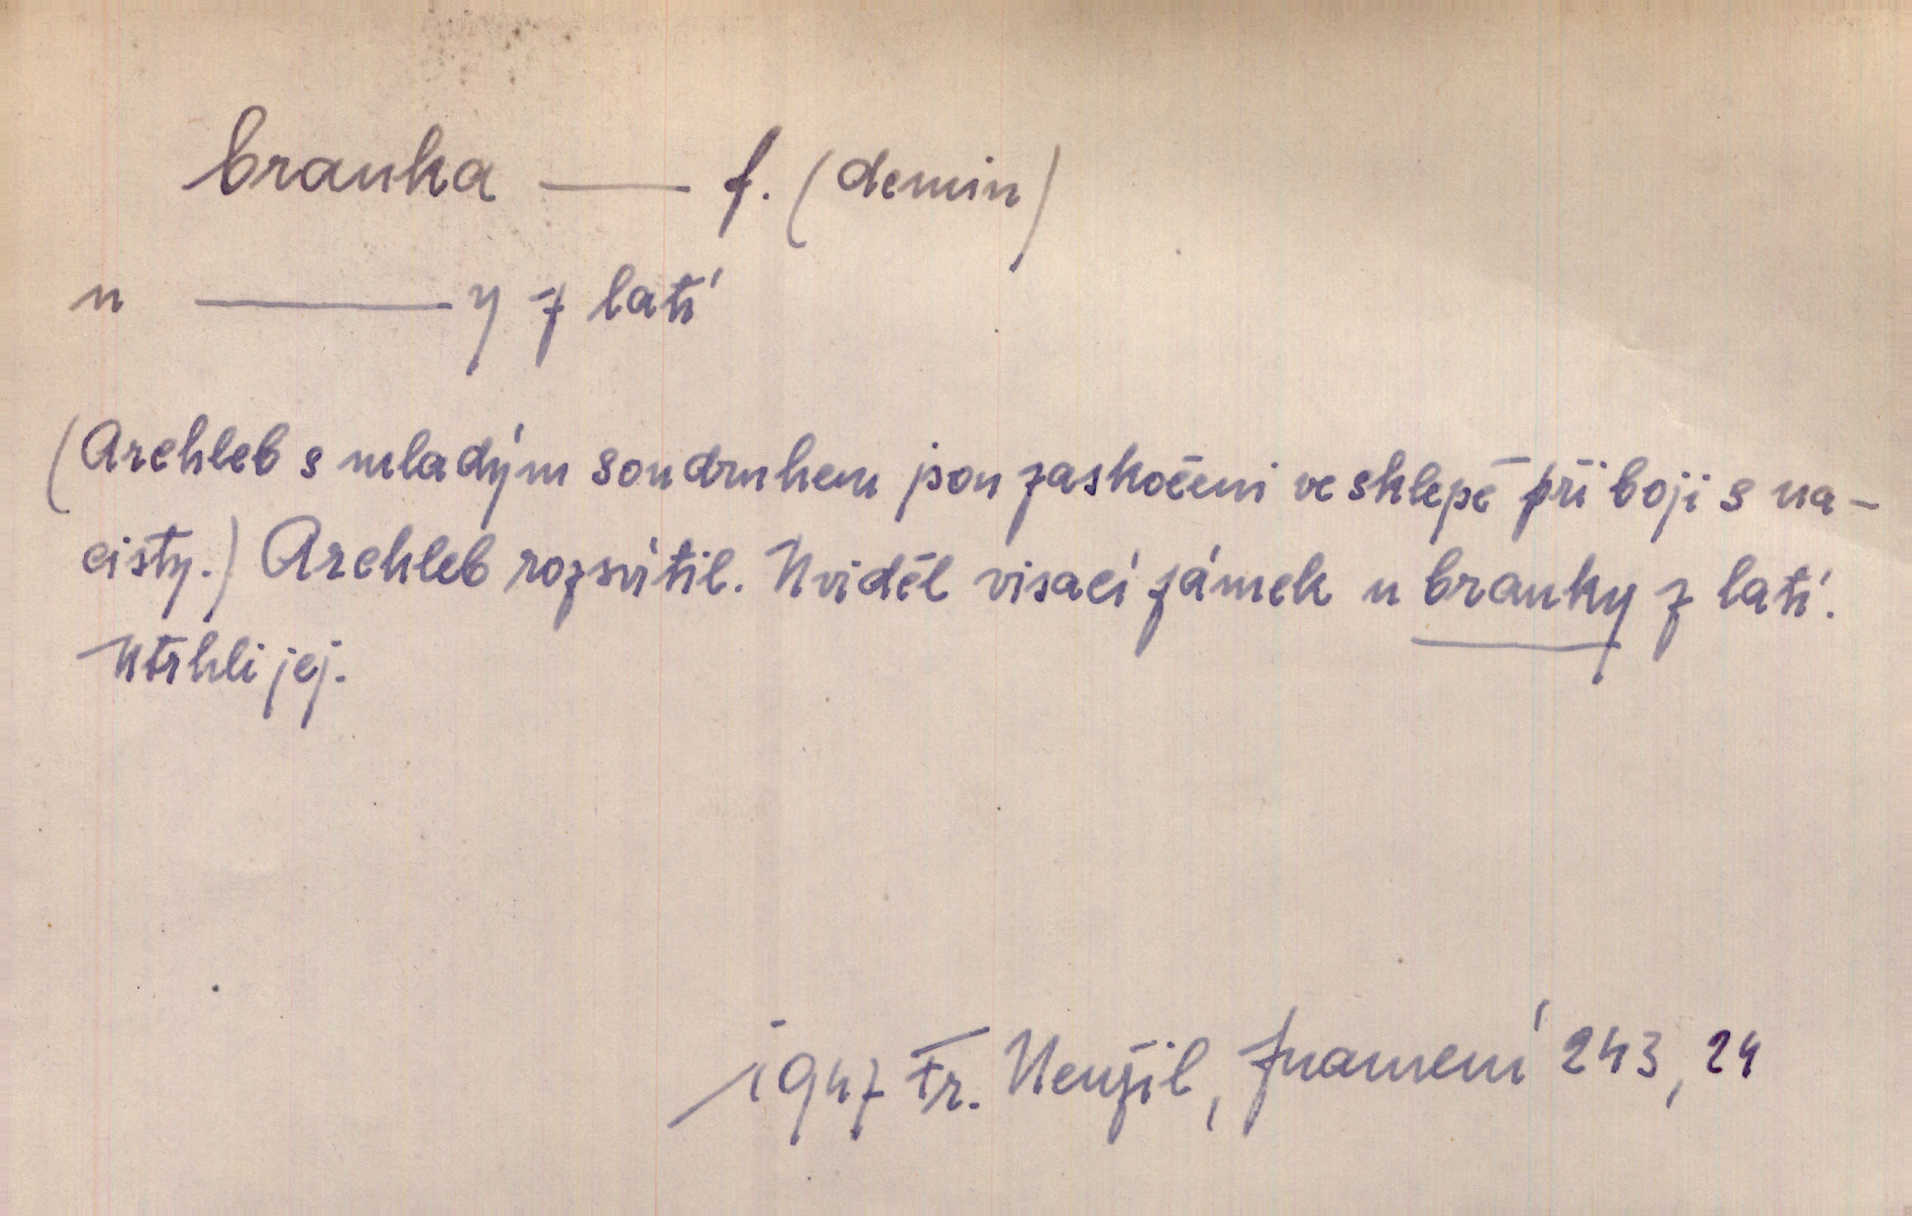 branka — f. (demin)
u — y z latí
(Archleb s mladým soudruhem jsou zaskočeni ve sklepě při boji s na-
cisty.) Archleb rozsvítil. Uviděl visací zámek u branky z latí.
Utrhli jej.
1947 Fr. Neužil, Znamení 243, 24